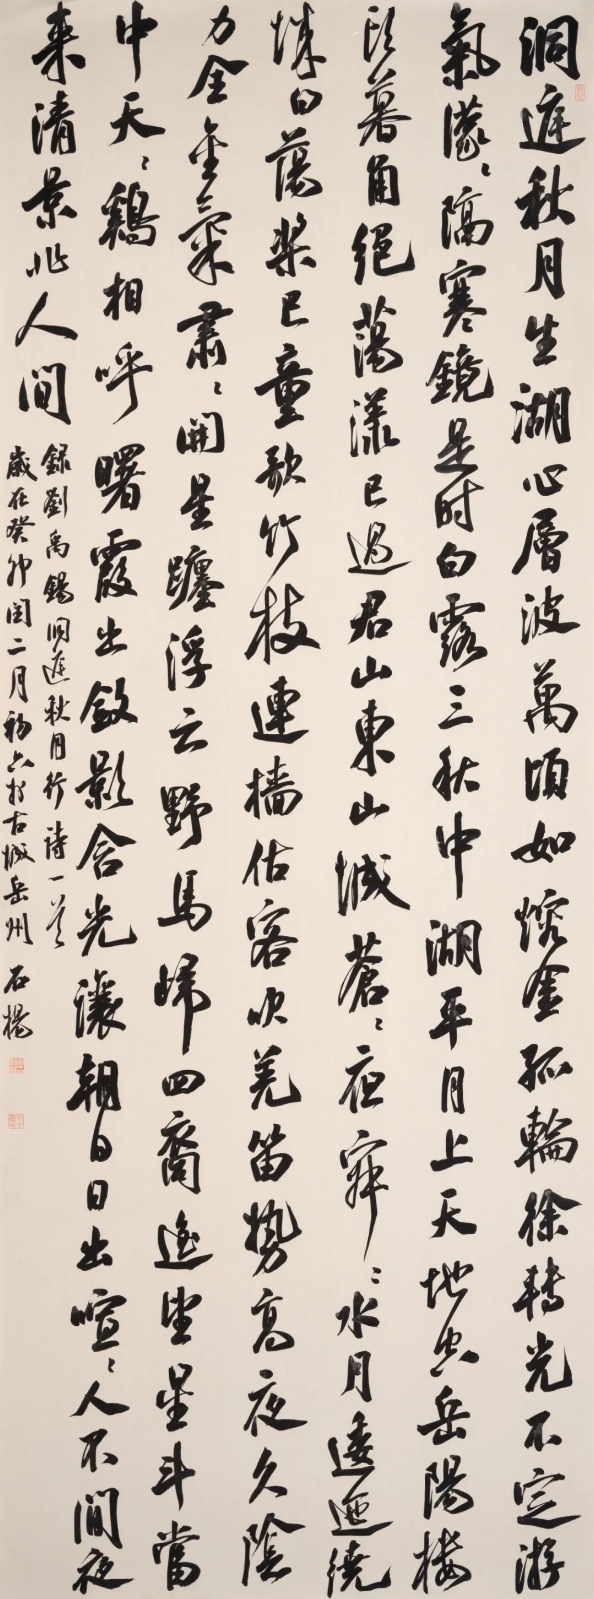 洞庭秋月生湖心層波萬頃如熔金孤輪徐轉光不定游
氣濛〻隔寒鏡是時白露三秋中湖平月上天地空岳陽樓
頭暮角絕蕩漾已過君山東山城蒼〻夜寂〻水月逶迤繞
城白蕩槳巴童歌竹枝連檣估客吹羌笛勢高夜久陰
力全金氣肅〻開星躔浮云野馬歸四裔遙望星斗當
中天〻鷄相呼曙霞出斂影含光讓朝日日出喧〻人不閒夜
來清景非人間
錄劉禹錫洞庭秋月行詩一首
歲在癸卯閏二月初六於古城岳州 石楊